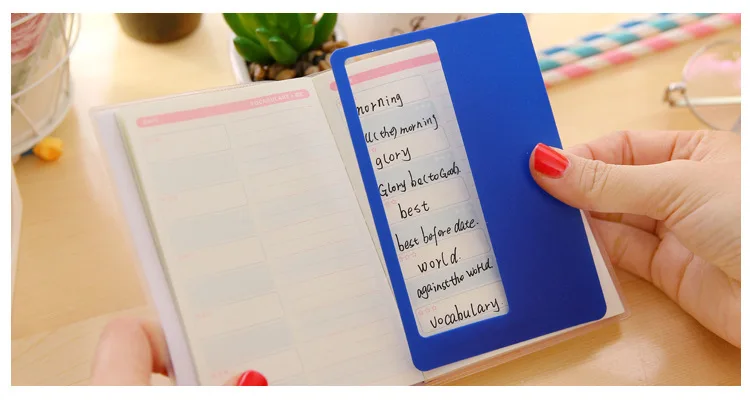 morning
all (the) morning
glory
Glory be (to God).
best
best before date.
world.
against the world.
vocabulary.